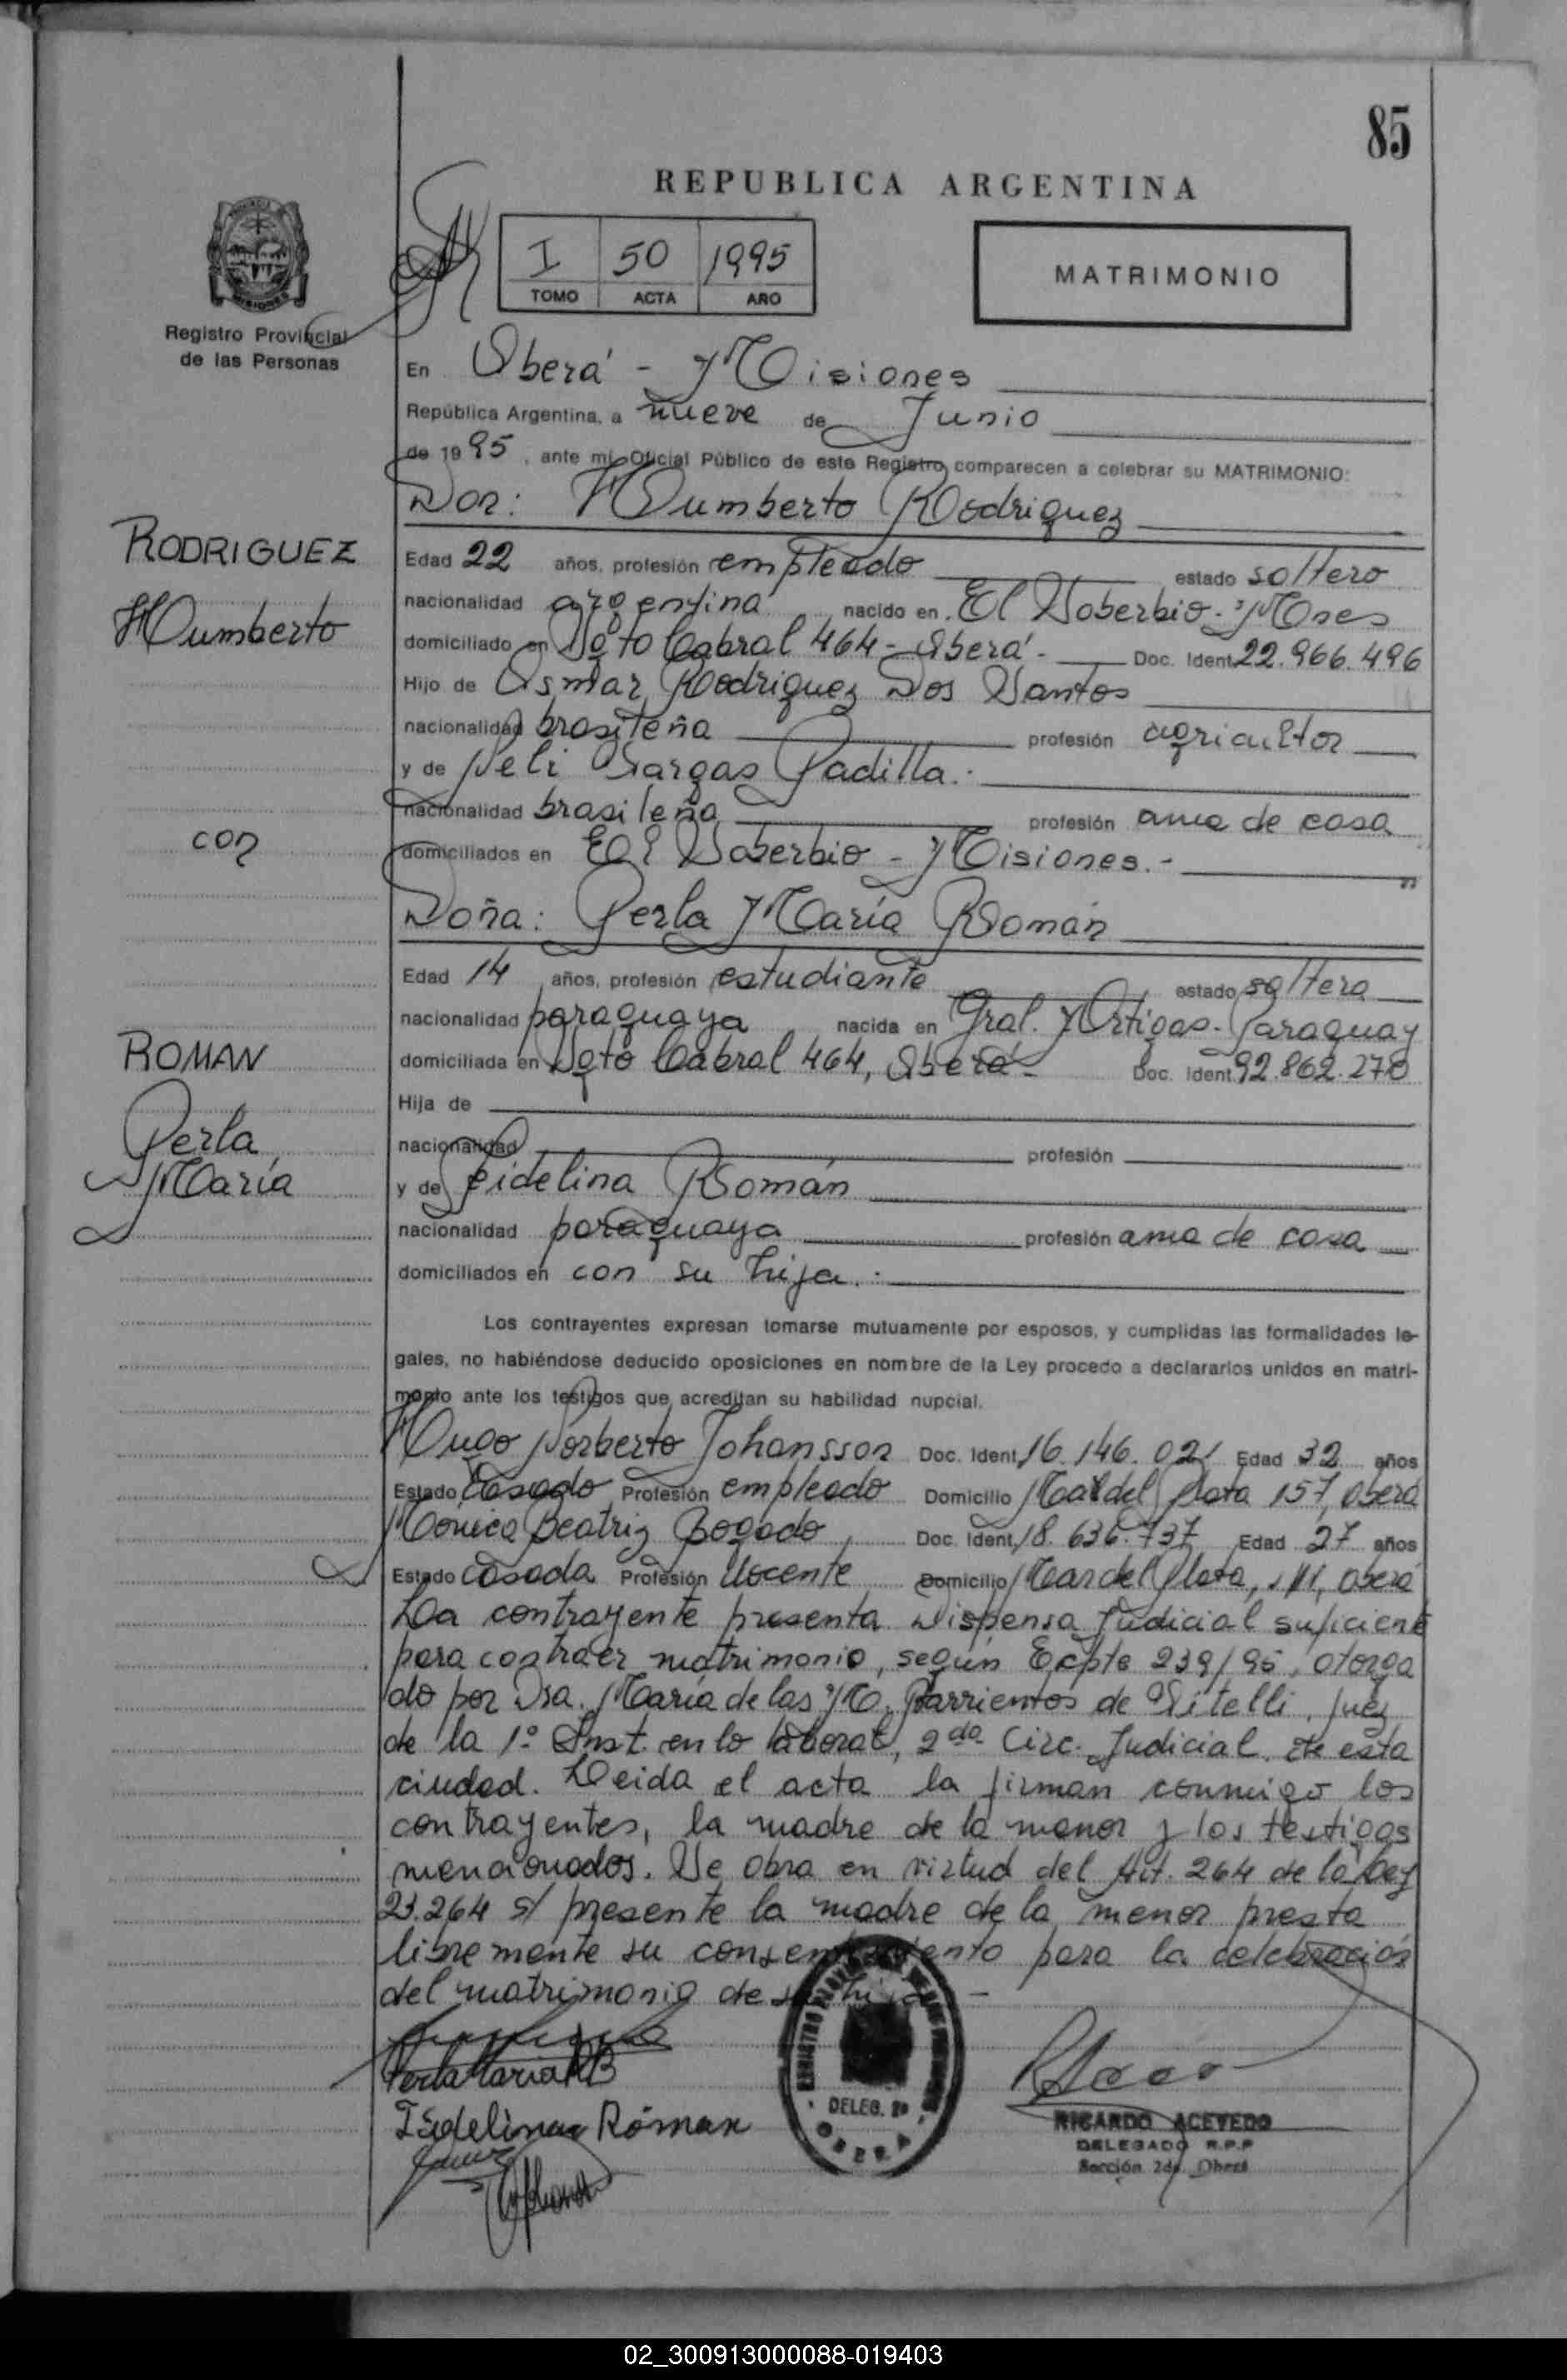 85
REPUBLICA ARGENTINA
I 50 1995
TOMO ACTA AÑO
MATRIMONIO
Registro Provincial
de las Personas
En Oberá - Misiones
República Argentina, a nueve de Junio
de 1995, ante mí, Oficial Público de este Registro comparecen a celebrar su MATRIMONIO:
Don: Humberto Rodriguez
RODRIGUEZ
Humberto
Edad 22 años, profesión empleado estado soltero
nacionalidad argentina nacido en El Soberbio - Mnes
domiciliado en Sgto Cabral 464 - Oberá - Doc. Ident. 22.966.496
Hijo de Osmar Rodriguez Dos Santos
nacionalidad brasileña profesión agricultor
y de Neli Vargas Padilla.-
nacionalidad brasileña profesión ama de casa
con
domiciliados en El Soberbio - Misiones.-
Doña: Perla María Román
Edad 14 años, profesión estudiante estado soltera
nacionalidad paraguaya nacida en Gral. Artigas - Paraguay
ROMAN
Perla
María
domiciliada en Sgto Cabral 464, Oberá - Doc. Ident. 92.862.278
Hija de
nacionalidad profesión
y de Fidelina Román
nacionalidad paraguaya profesión ama de casa
domiciliados en con su hija.-
Los contrayentes expresan tomarse mutuamente por esposos, y cumplidas las formalidades le-
gales, no habiéndose deducido oposiciones en nombre de la Ley procedo a declararlos unidos en matri-
monio ante los testigos que acreditan su habilidad nupcial.
Hugo Norberto Johansson Doc. Ident. 16.146.021 Edad 32 años
Estado Casado Profesión empleado Domicilio Mar del Plata 157, Oberá
Mónica Beatriz Bogado Doc. Ident. 18.636.737 Edad 27 años
Estado casada Profesión docente Domicilio Mar del Plata, Oberá
La contrayente presenta Dispensa Judicial suficiente
para contraer matrimonio, según Expte 239/95, otorga
do por Dra. María de las M. Barrientos de Vitelli, Juez
de la 1° Inst. en lo laboral, 2da Circ. Judicial de esta
ciudad. Leida el acta la firman conmigo los
contrayentes, la madre de la menor y los testigos
mencionados. Se obra en virtud del Art. 264 de la Ley
23.264 s/ presente la madre de la menor presta
libremente su consentimiento para la celebración
del matrimonio de su hija -
Perla Maria RB
Fidelina Román
DELEG. 2ª
OBERA
RICARDO ACEVEDO
DELEGADO R.P.P
Sección 2da. Oberá
02_300913000088-019403